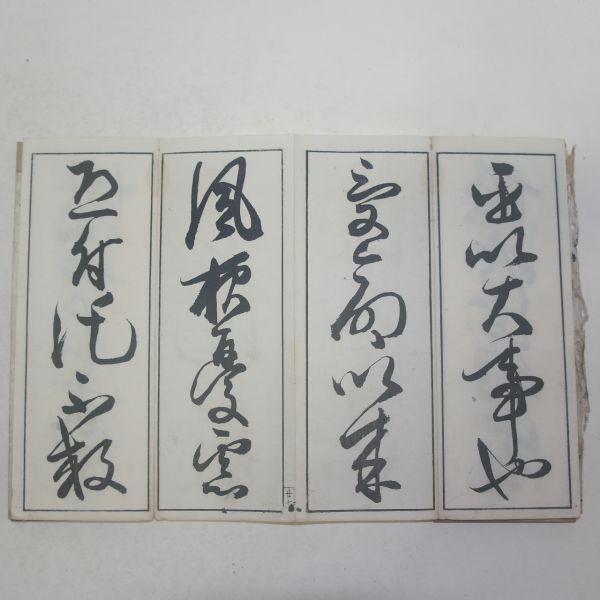 臣以大事也
受命以来
夙夜憂慮
恐付託不效